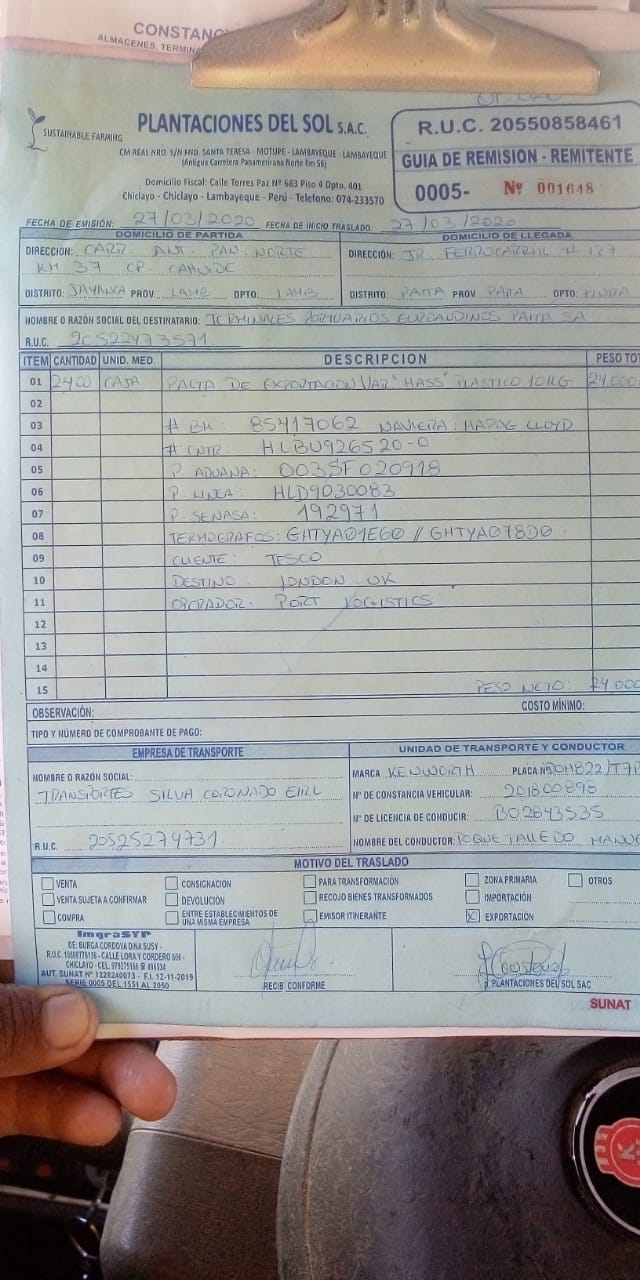 CONSTANC
ALMACENES, TERMINA
SUSTAINABLE FARMING
PLANTACIONES DEL SOL S.A.C.
CM REAL NRO. S/N FND. SANTA TERESA - MOTUPE - LAMBAYEQUE - LAMBAYEQUE
(Antigua Carretera Panamericana Norte Km 56)
Domicilio Fiscal: Calle Torres Paz Nº 683 Piso 4 Dpto. 401
Chiclayo - Chiclayo - Lambayeque - Perú - Telefono: 074-233570
R.U.C. 20550858461
GUIA DE REMISION - REMITENTE
0005- Nº 001648
FECHA DE EMISIÓN: 27/03/2020 FECHA DE INICIO TRASLADO: 27/03/2020
DOMICILIO DE PARTIDA
DIRECCIÓN: CARR. ANT. PAN. NORTE
KM 37 CP. CAHUIDE
DISTRITO: JAYANCA PROV. LAMB DPTO: LAMB
DOMICILIO DE LLEGADA
DIRECCIÓN: JR. FERROCARRIL # 127
DISTRITO: PAITA PROV. PAITA DPTO: PIURA
NOMBRE O RAZÓN SOCIAL DEL DESTINATARIO: TERMINALES PORTUARIOS EUROANDINOS PAITA SA
R.U.C. 20522473571
ITEM CANTIDAD UNID. MED. DESCRIPCION PESO TOT
01 2400 CAJA PALTA DE EXPORTACION VAR "HASS" PLASTICO 10KG 24,000
02
03 # BK: 85417062 NAVIERA: HAPAG LLOYD
04 # CNTR: HLBU926520-0
05 P. ADUANA: 003SF020918
06 P. LINEA: HLD9030083
07 P. SENASA: 192971
08 TERMOGRAFOS: GHTYA01E60 // GHTYA078D0
09 CLIENTE: TESCO
10 DESTINO: LONDON. UK
11 OPERADOR: PORT LOGISTICS
12
13
14
15 PESO NETO: 24,000
OBSERVACIÓN: COSTO MÍNIMO:
TIPO Y NÚMERO DE COMPROBANTE DE PAGO:
EMPRESA DE TRANSPORTE
NOMBRE O RAZÓN SOCIAL:
TRANSPORTES SILVA CORONADO EIRL
R.U.C. 20525279731
UNIDAD DE TRANSPORTE Y CONDUCTOR
MARCA KENWORTH PLACA Nº
Nº DE CONSTANCIA VEHICULAR: 201800898
Nº DE LICENCIA DE CONDUCIR: B02843535
NOMBRE DEL CONDUCTOR: ROQUE TALLEDO MANU
MOTIVO DEL TRASLADO
VENTA CONSIGNACION PARA TRANSFORMACIÓN ZONA PRIMARIA OTROS
VENTA SUJETA A CONFIRMAR DEVOLUCIÓN RECOJO BIENES TRANSFORMADOS IMPORTACIÓN
COMPRA ENTRE ESTABLECIMIENTOS DE UNA MISMA EMPRESA EMISOR ITINERANTE X EXPORTACIÓN
ImgraSYP
DE: BURGA CORDOVA DINA SUSY -
CALLE LORA Y CORDERO
CHICLAYO - CEL.
AUT. SUNAT Nº 1228240073 - F.I. 12-11-2019
SERIE 0005 DEL 1551 AL 2050
RECIBI CONFORME
PLANTACIONES DEL SOL SAC
SUNAT